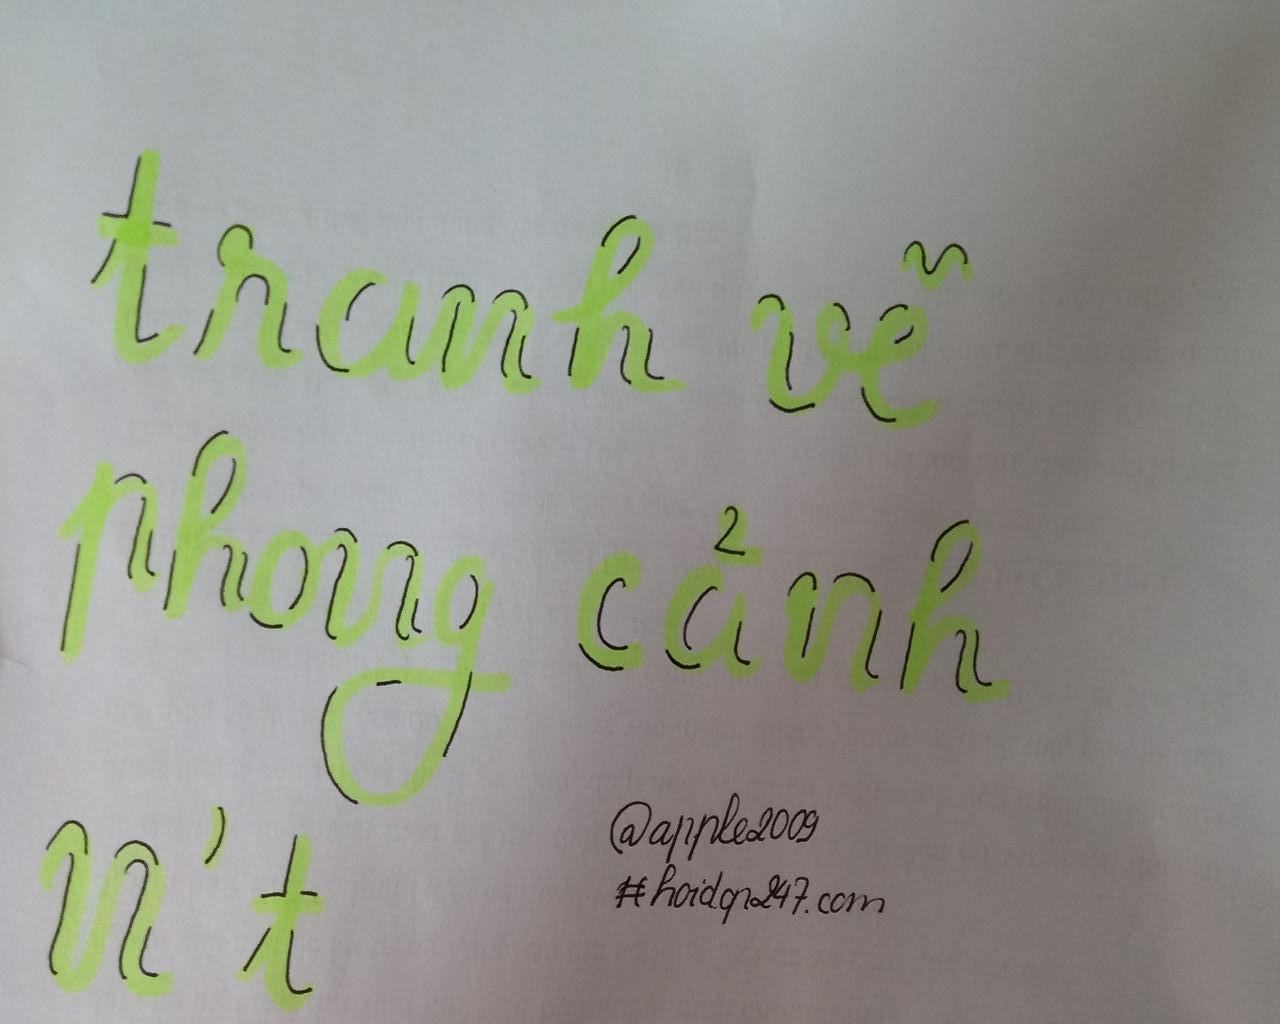 tranh vẽ
phong cảnh
n't
@apple2009
#hoidap247.com